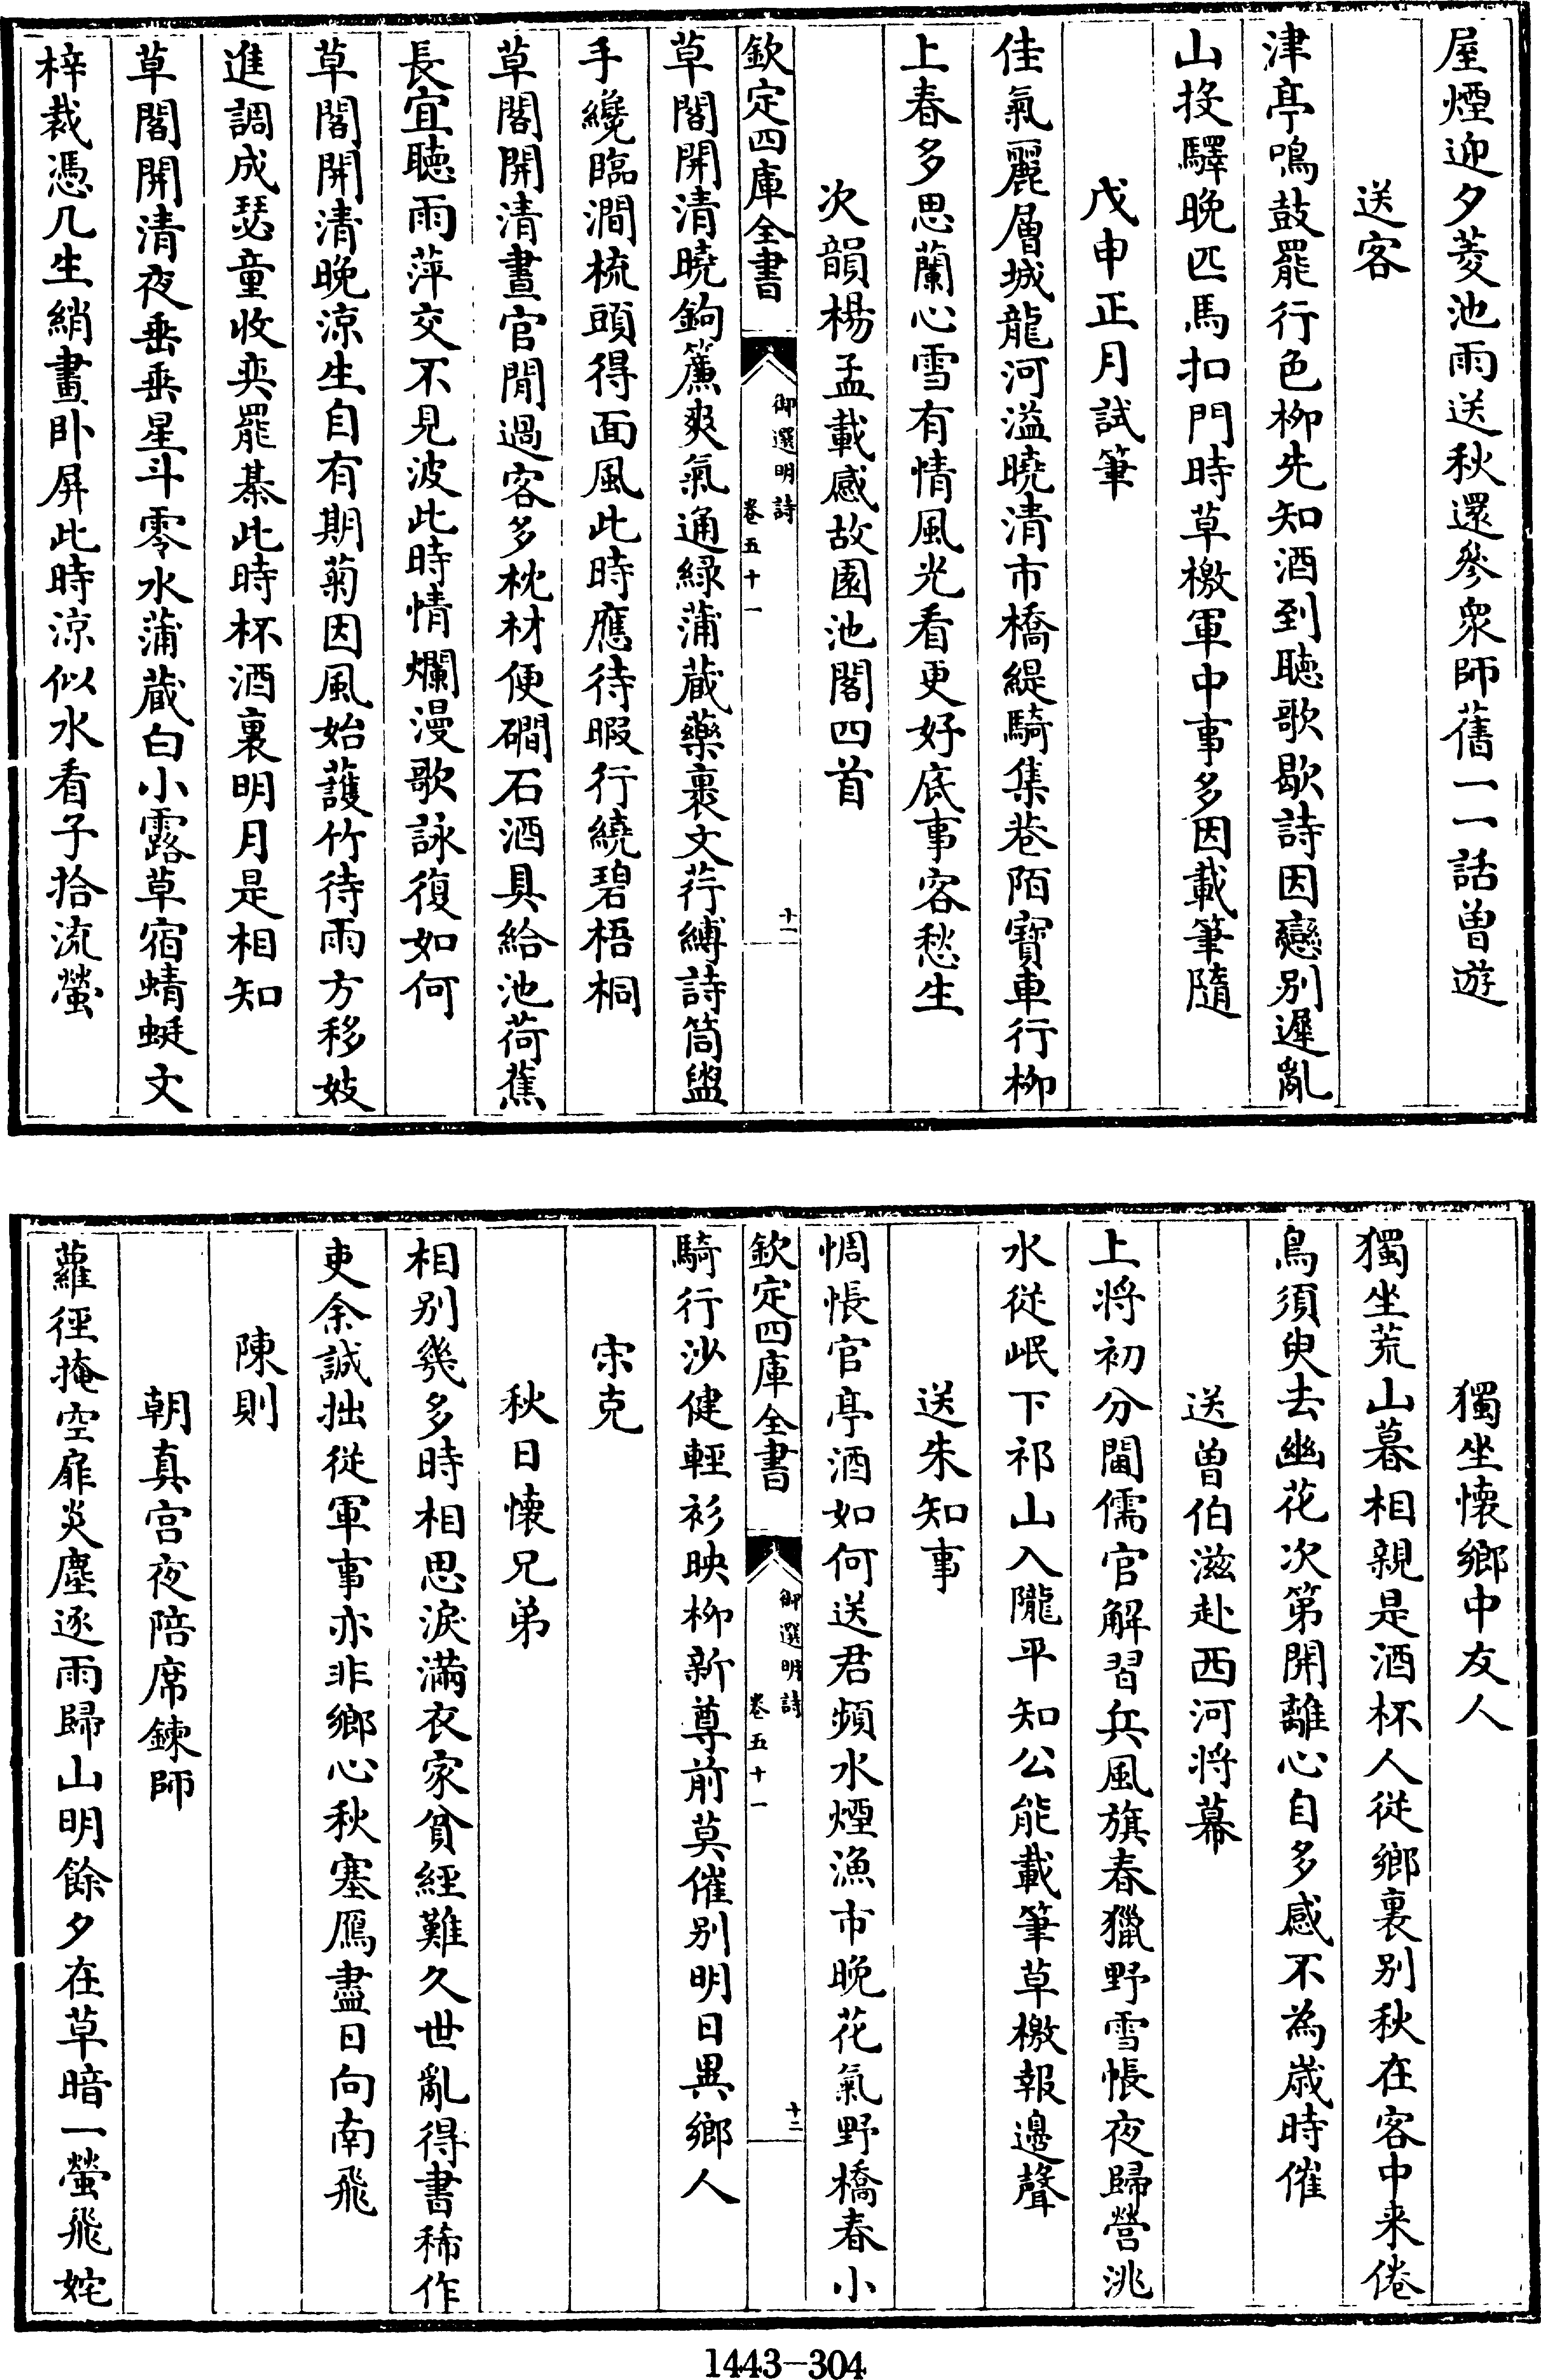 屋煙迎夕菱池雨送秋還參衆師舊一一話曽遊
送客
津亭鳴鼓罷行色栁先知酒到聴歌歇詩因戀别遲亂
山投驛晩匹馬扣門時草檄軍中事多因載筆隨
戊申正月試筆
佳氣麗層城龍河溢曉清市橋緹騎集巷陌寳車行栁
上春多思蘭心雪有情風光看更好底事客愁生
次韻楊孟載感故園池閣四首
欽定四庫全書
御選明詩
卷五十一
十一
草閣開清曉鉤簾爽氣通緑蒲蔵藥裹文荇縛詩筒盥
手纔臨澗梳頭得面風此時應待暇行繞碧梧桐
草閣開清晝官閒過客多枕材便磵石酒具給池荷蕉
長宜聴雨萍交不見波此時情爛漫歌詠復如何
草閣開清晩涼生自有期菊因風始護竹待雨方移妓
進調成瑟童收奕罷棊此時杯酒裏明月是相知
草閣開清夜垂垂星斗零水蒲蔵白小露草宿蜻蜓文
梓裁憑几生綃畫卧屏此時涼似水看子拾流螢
獨坐懐鄉中友人
獨坐荒山暮相親是酒杯人從鄉裏别秋在客中来倦
鳥須臾去幽花次第開離心自多感不為歳時催
送曽伯滋赴西河将幕
上将初分閫儒官解習兵風旗春獵野雪帳夜歸營洮
水從岷下祁山入隴平知公能載筆草檄報邊聲
送朱知事
惆悵官亭酒如何送君頻水煙漁市晩花氣野橋春小
欽定四庫全書
御選明詩
卷五十一
十二
騎行沙健輕衫映栁新尊前莫催别明日異鄉人
宋克
秋日懐兄弟
相别幾多時相思淚滿衣家貧經難久世亂得書稀作
吏余誠拙從軍事亦非鄉心秋塞鴈盡日向南飛
陳則
朝真宫夜陪席鍊師
蘿徑掩空扉炎塵逐雨歸山明餘夕在草暗一螢飛姹
1443-304